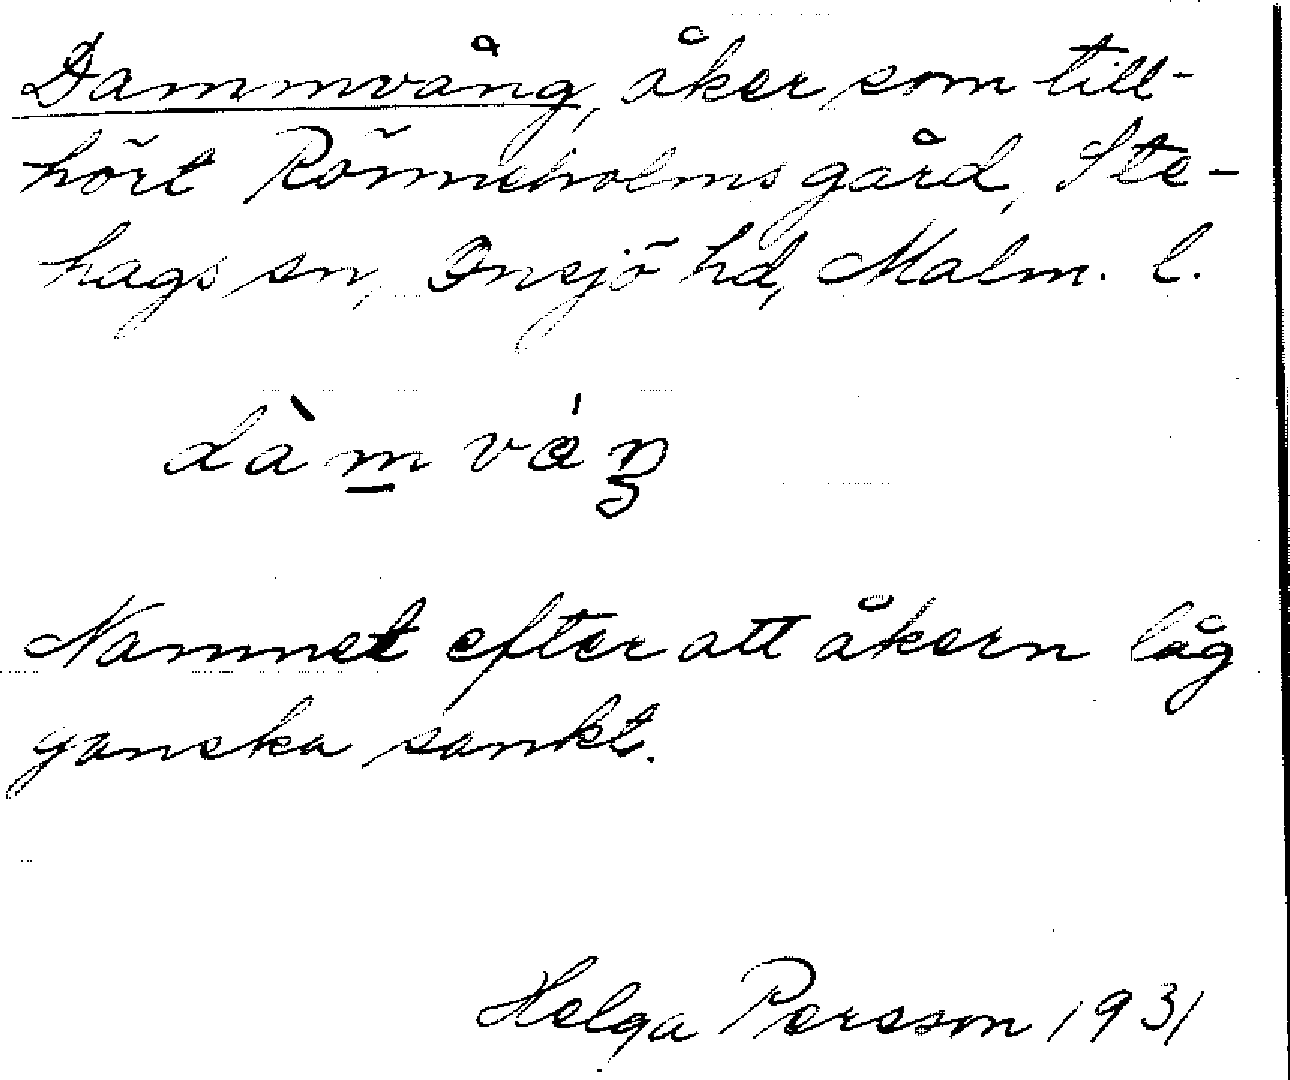 Dammvång, åker som till-
hört Rönneholmsgård, Ste-
hags sn, Onsjö hd, Malm. l.
dàm̲váŋ
Namnet efter att åkern låg
ganska sankt.
Helga Persson 1931